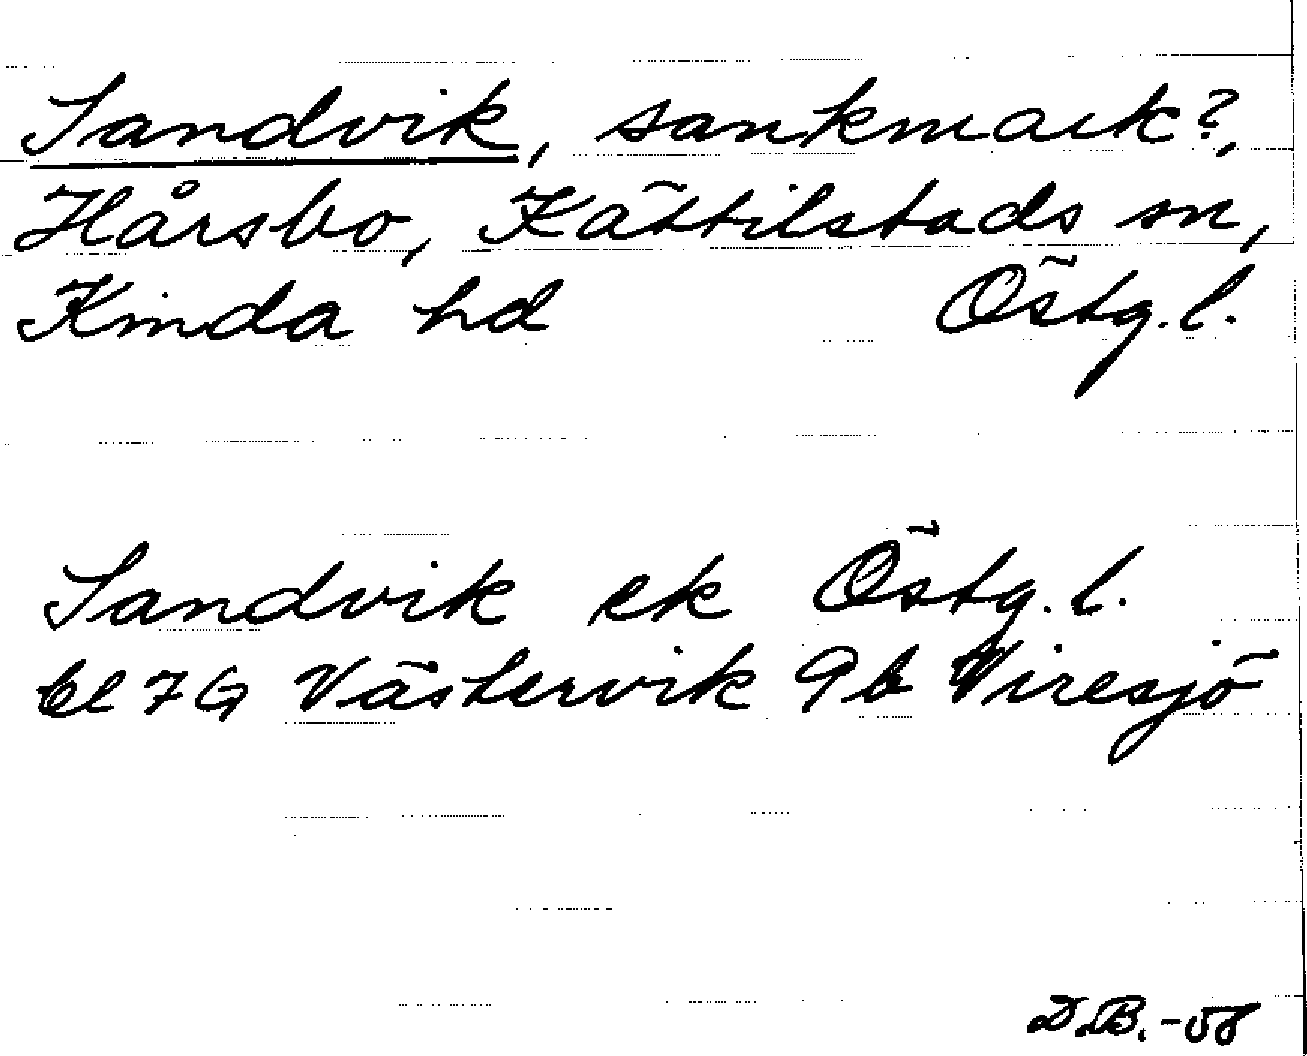 Sandvik, sankmark?,
Hårsbo, Kättilstads sn,
Kinda hd Östg. l.
Sandvik ek Östg. l.
bl 7G Västervik 9b Viresjö
D.B. -58